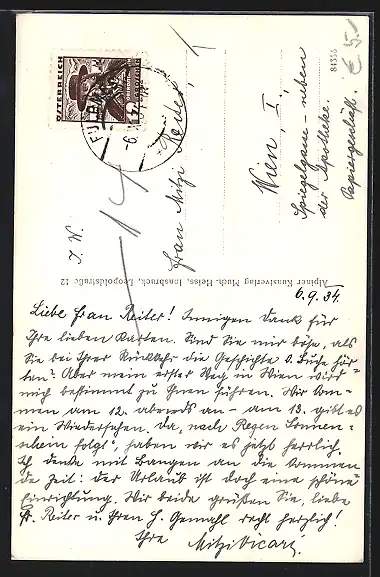 ÖSTERREICH
12
6
J. W.
Frau Mitzi
Reiter
Wien, I.
Spiegelgasse - neben
der Apotheke.
Papiergeschäft.
84556
€ 5.-
Alpiner Kunstverlag Rich. Heiss, Innsbruck, Leopoldstraße 12
6.9.34.
Liebe Frau Reiter! Innigen Dank für
Ihre lieben Karten. Sind Sie mir böse, als
Sie bei Ihrer Rückkehr die Geschichte v. Küche hör-
ten? Aber mein erster Weg in Wien wird
mich bestimmt zu Ihnen führen. Wir kom-
men am 12. abends an - am 13. gibt es
ein Wiedersehen. Da, nach Regen Sonnen-
schein folgt, haben wir es jetzt herrlich.
Ich denke mit Bangen an die kommen-
de Zeit: der Urlaub ist doch eine schöne
Einrichtung. Wir beide grüßen Sie, liebe
Fr. Reiter u. Ihren H. Gemahl recht herzlich!
Ihre Mitzi